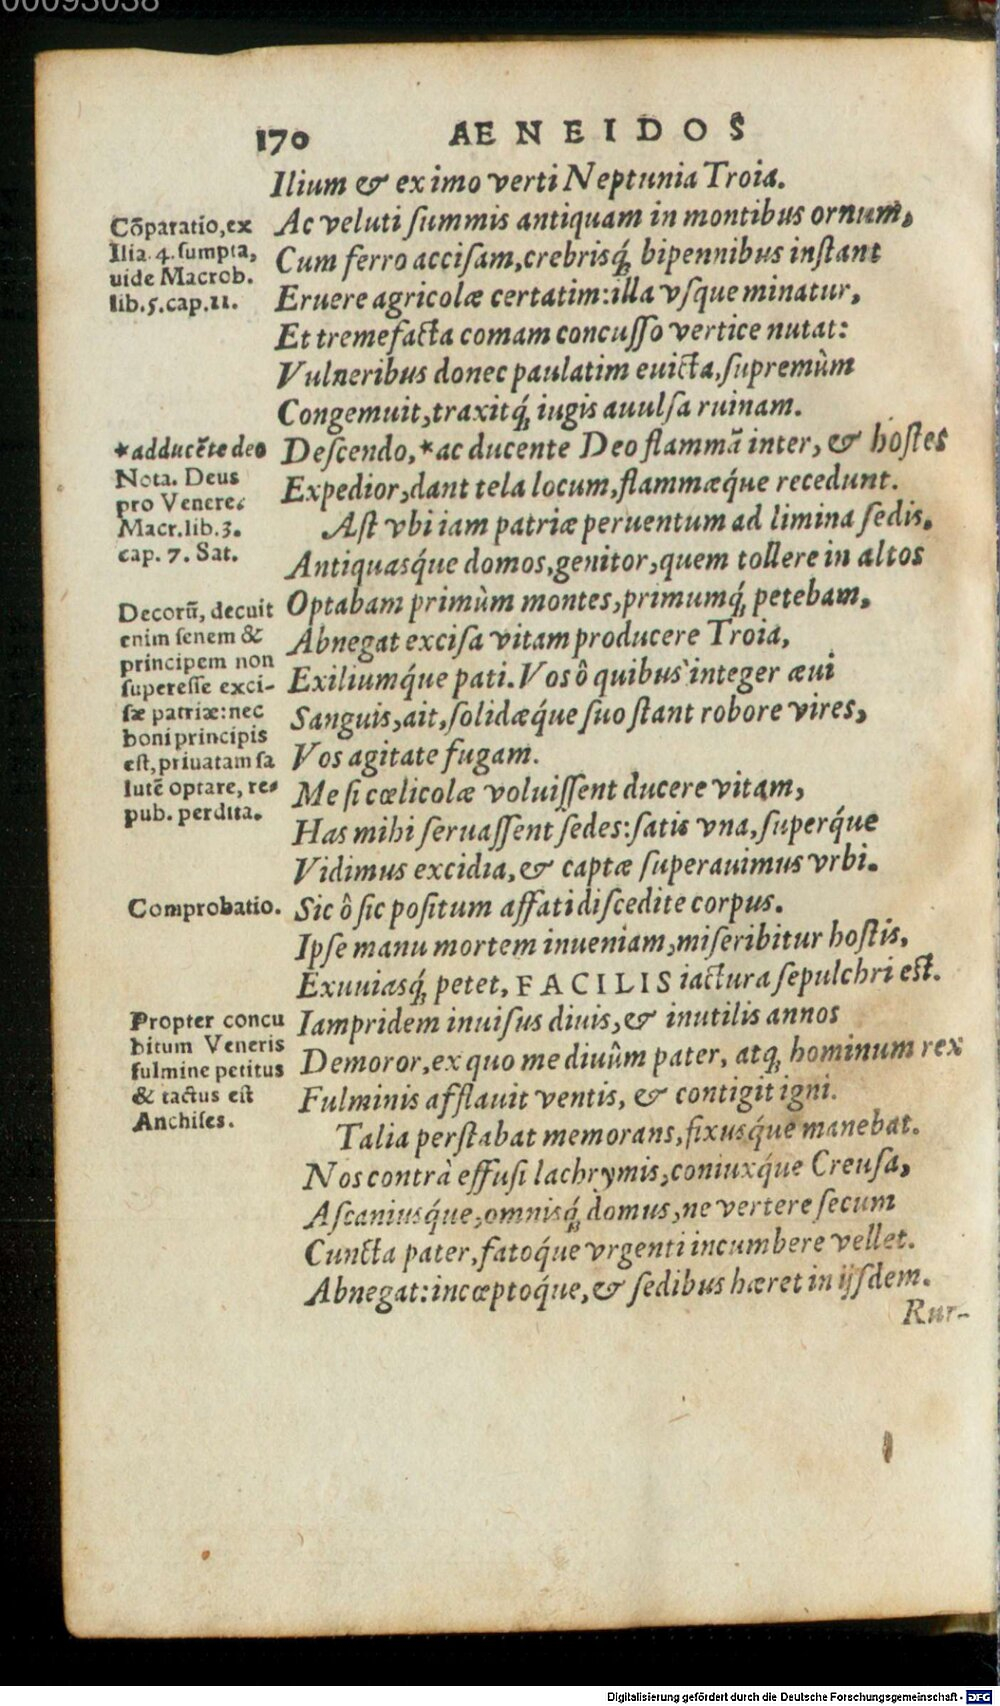 00093038
170 AENEIDOS
Ilium & ex imo verti Neptunia Troia.
Cōparatio, ex
Ilia. 4. sumpta,
uide Macrob.
lib. 5. cap. 11.
Ac veluti ſummis antiquam in montibus ornum,
Cum ferro acciſam, crebrisq́; bipennibus inſtant
Eruere agricolæ certatim: illa vſque minatur,
Et tremefacta comam concuſſo vertice nutat:
Vulneribus donec paulatim euicta, ſupremùm
Congemuit, traxitq́; iugis auulſa ruinam.
*adducēte deo
Nota. Deus
pro Venere.
Macr. lib. 3.
cap. 7. Sat.
Deſcendo, *ac ducente Deo flammā inter, & hoſtes
Expedior, dant tela locum, flammæq́ue recedunt.
Aſt vbi iam patriæ peruentum ad limina ſedis,
Antiquasq́ue domos, genitor, quem tollere in altos
Decorū, decuit
enim ſenem &
principem non
ſupereſſe exci-
ſæ patriæ: nec
boni principis
eſt, priuatam ſa
lutē optare, re-
pub. perdita.
Optabam primùm montes, primumq́; petebam,
Abnegat exciſa vitam producere Troia,
Exiliumq́ue pati. Vos ô quibus integer æui
Sanguis, ait, ſolidæq́ue ſuo ſtant robore vires,
Vos agitate fugam.
Me ſi cœlicolæ voluiſſent ducere vitam,
Has mihi ſeruaſſent ſedes: ſatis vna, ſuperq́ue
Vidimus excidia, & captæ ſuperauimus vrbi.
Comprobatio.
Sic ô ſic poſitum affati diſcedite corpus.
Ipſe manu mortem inueniam, miſeribitur hoſtis,
Exuuiasq́; petet, FACILIS iactura ſepulchri eſt.
Propter concu
bitum Veneris
fulmine petitus
& tactus eſt
Anchiſes.
Iampridem inuiſus diuis, & inutilis annos
Demoror, ex quo me diuûm pater, atq; hominum rex
Fulminis afflauit ventis, & contigit igni.
Talia perſtabat memorans, fixusq́ue manebat.
Nos contrà effuſi lachrymis, coniuxq́ue Creuſa,
Aſcaniusq́ue, omnisq́; domus, ne vertere ſecum
Cuncta pater, fatoq́ue vrgenti incumbere vellet.
Abnegat: incœptoq́ue, & ſedibus hæret in ijſdem.
Rur-
Digitalisierung gefördert durch die Deutsche Forschungsgemeinschaft - DFG